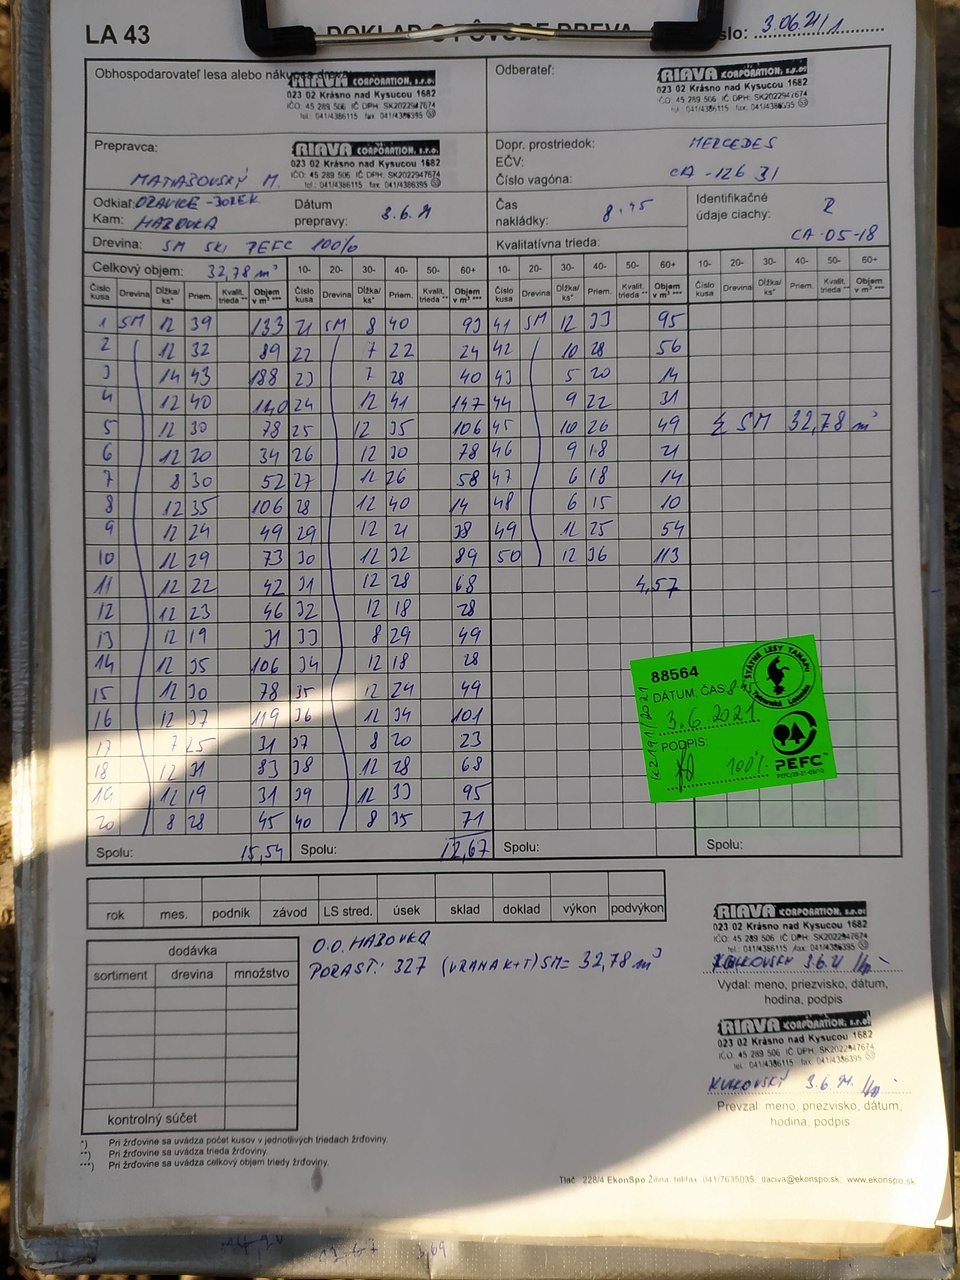 LA 43
DOKLAD O PÔVODE DREVA
3.06.21/1
Obhospodarovateľ lesa alebo nákupca dreva
RIAVA CORPORATION, s.r.o.
023 02 Krásno nad Kysucou 1682
IČO: 45 289 506 IČ DPH: SK2022947674
tel.: 041/4386115 fax: 041/4386395
Odberateľ:
RIAVA CORPORATION, s.r.o.
023 02 Krásno nad Kysucou 1682
IČO: 45 289 506 IČ DPH: SK2022947674
tel.: 041/4386115 fax: 041/4386395
Prepravca:
RIAVA CORPORATION, s.r.o.
023 02 Krásno nad Kysucou 1682
IČO: 45 289 506 IČ DPH: SK2022947674
tel.: 041/4386115 fax: 041/4386395
MATIAŠOVSKÝ M.
Dopr. prostriedok: MERCEDES
EČV:
Číslo vagóna: CA-126 31
Odkiaľ: ORAVICE-BOREK
Kam: HABOVKA
Dátum prepravy: 3.6.21
Čas nakládky: 8.45
Identifikačné údaje ciachy: R
CA-05-18
Drevina: SM SKI PEFC 100%
Kvalitatívna trieda:
Celkový objem: 32,78 m³ 10- 20- 30- 40- 50- 60+ 10- 20- 30- 40- 50- 60+ 10- 20- 30- 40- 50- 60+
Číslo kusa Drevina Dĺžka/ks* Priem. Kvalit. trieda** Objem v m³ *** Číslo kusa Drevina Dĺžka/ks* Priem. Kvalit. trieda** Objem v m³ *** Číslo kusa Drevina Dĺžka/ks* Priem. Kvalit. trieda** Objem v m³ *** Číslo kusa Drevina Dĺžka/ks* Priem. Kvalit. trieda** Objem v m³ ***
1 SM 12 39 133 21 SM 8 40 93 41 SM 12 33 95
2 12 32 89 22 7 22 24 42 10 28 56
3 14 43 188 23 7 28 40 43 5 20 14
4 12 40 140 24 12 41 147 44 9 22 31
5 12 30 78 25 12 35 106 45 10 26 49 Σ SM 32,78 m³
6 12 20 34 26 12 30 78 46 9 18 21
7 8 30 52 27 12 26 58 47 6 18 14
8 12 35 106 28 12 40 14 48 6 15 10
9 12 24 49 29 12 21 38 49 12 25 54
10 12 29 73 30 12 32 89 50 12 36 113
11 12 22 42 31 12 28 68 4,57
12 12 23 46 32 12 18 28
13 12 19 31 33 8 29 49
14 12 35 106 34 12 18 28
15 12 30 78 35 12 24 49
16 12 37 119 36 12 34 101
17 7 25 31 37 8 20 23
18 12 31 83 38 12 28 68
19 12 19 31 39 12 33 95
20 8 28 45 40 8 35 71
Spolu: 15,54 Spolu: 12,67 Spolu: Spolu:
88564
DÁTUM, ČAS: 8.45
3.6.2021
PODPIS:
100%
K2191/2021
ŠTÁTNE LESY TANAPu
Tatranská Lomnica
PEFC
rok mes. podnik závod LS stred. úsek sklad doklad výkon podvýkon
dodávka
sortiment drevina množstvo
kontrolný súčet
O.O. HABOVKA
PORAST: 327 (VRANA K+T) SM = 32,78 m³
RIAVA CORPORATION, s.r.o.
023 02 Krásno nad Kysucou 1682
IČO: 45 289 506 IČ DPH: SK2022947674
tel.: 041/4386115 fax: 041/4386395
KULKOVSKÝ 3.6.21
Vydal: meno, priezvisko, dátum,
hodina, podpis
RIAVA CORPORATION, s.r.o.
023 02 Krásno nad Kysucou 1682
IČO: 45 289 506 IČ DPH: SK2022947674
tel.: 041/4386115 fax: 041/4386395
KULKOVSKÝ 3.6.21.
Prevzal: meno, priezvisko, dátum,
hodina, podpis
*) Pri žrďovine sa uvádza počet kusov v jednotlivých triedach žrďoviny.
**) Pri žrďovine sa uvádza trieda žrďoviny.
***) Pri žrďovine sa uvádza celkový objem triedy žrďoviny.
Tlač 228/4 EkonSpo Žilina tel/fax 041/7635035, tlaciva@ekonspo.sk, www.ekonspo.sk